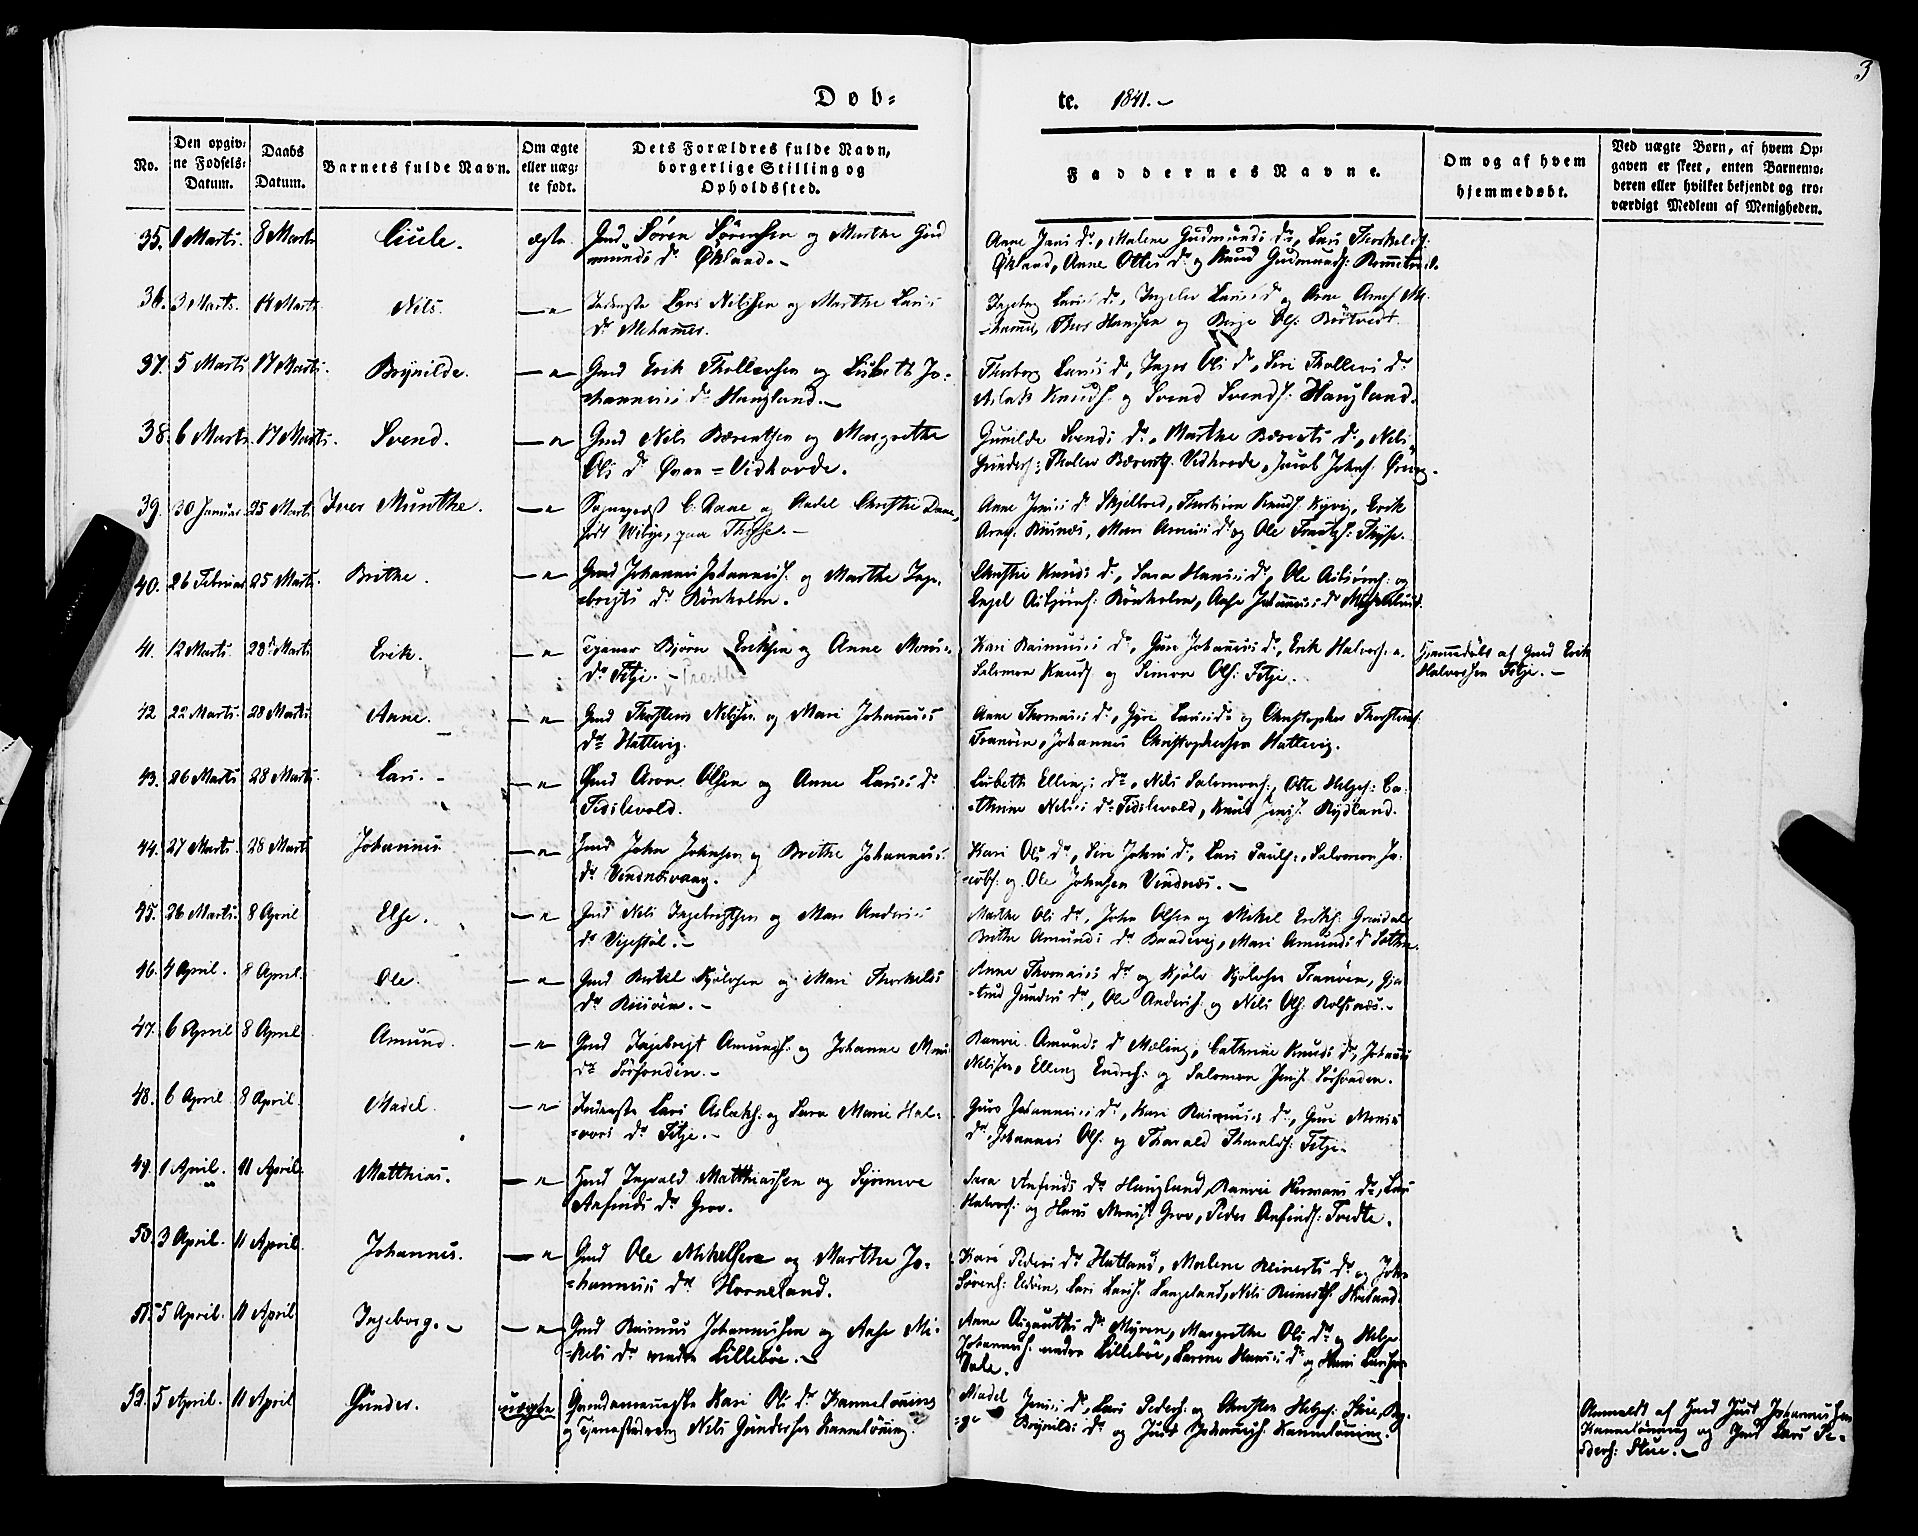 3
Døb-
te. 1841.-
No.
Den opgiv-
ne Fødsels-
Datum.
Daabs
Datum.
Barnets fulde Navn.
Om ægte
eller uæg-
te født.
Dets Forældres fulde Navn,
borgerlige Stilling og
Opholdssted.
Faddernes Navne.
Om og af hvem
hjemmedøbt.
Ved uægte Børn, af hvem Op-
gaven er skeet, enten Barnemo-
deren eller hvilket bekjendt og tro-
værdigt Medlem af Menigheden.
35. 1 Marts. 8 Marts ægte Gmd Søren Sørensen og Marthe Gud
munds Dr Økland.-
Anne Jens Dr, Malene Gudmunds Dr, Lars Thorkelds:
Økland, Anne Ottes Dr og Knud Gudmunds:
36. 3 Marts. 14 Marts. Nils. -"- Inderste Lars Nilssen og Marthe Lars
Dr Mehamer.
Ingeborg Lars Dr, Lars Dr og Arne Arnes
Hansen og Børge Ols:
37. 5 Marts 17 Marts. Brynilde. -"- Gmd Erik Thollevsen og Lisbeth Jo-
hannes Dr Haugland.-
Thorborg Lars Dr, Inger Ols Dr, Siri Thollevs Dr
Aslak Knuds: og Svend Svends: Haugland.
38. 6 Marts. 17 Marts. Svend. -"- Gmd Nils Bærentsen og Margrethe
Ols Dr Øvre=Vidhovde.
Gunilde Svends Dr, Marthe Bærents Dr, Nils
Gunders: Thollev Bærents: Vidhovde, Jacob Johns:
39. 30 Januar 25 Marts Iver Munthe. -"- Sognepræst C. Daae og Andel Christie Daae,
født Wilye, paa Thysse.-
Anne Jens Dr Skjelbred, Knuds: Erik
Arnes: Mari Dr og Ole Thysse.
40. 26 Februar 25 Marts. Brithe. -"- Gmd Johannes Johannes: og Marthe Inge-
=brigts Dr Rönholm.
Christie Knuds Dr, Sara Hanses Dr, Ole Asbjørns: og
Engel Asbjørns: Rönholm, Aase Johannes Dr
41. 12 Marts. 28 Marts Erik. -"- Tjener Bjørn Eriksen og Anne Mons-
Dr Fitje.-
Kari Rasmus Dr, Guro Johannes Dr, Erik Halvors: o.
Salomon Knuds: og Simon Ols: Fitje.
Hjemmedøbt af Gmd Erik
Halvorsen Fitje.-
42 22 Marts. 28 Marts Anne. -"- Gmd Thorsten Nilssen og Mari Johannes
Dr Hattevig.
Anne Thomas Dr, Gyri Lars Dr og Christopher Thorstens:
Tranöen, Johannes Christophersen Hattevig.
43. 26 Marts 28 Marts. Lars.- -"- Gmd Aron Olsen og Anne Lars Dr
Fidslevold.
Lisbeth Ellings Dr, Nils Salomons:, Otte Helges: Ca-
=thrine Nilses Dr Fidslevold, Knud Jens: Rydland.
44. 27 Marts. 28 Marts Johannes -"- Gmd John Johnsen og Brithe Johannes
Dr Vindnæsvaag.
Kari Ols Dr, Siri Johns Dr, Lars Pauls:, Salomon Ja-
=cobs: og Ole Johnsen Vindnæs.-
45. 26 Marts. 8 April Else. -"- Gmd Nils Ingebrigtsen og Mari Anders
Dr Vigestøl.-
Marthe Ols Dr, John Olsen og Mikel Eriks:
Brithe Amunds Dr Mari Amunds Dr
46. 4 April. 8 April. Ole. -"- Gmd Bertel Kjølvsen og Mari Thorkelds
Dr Riisöen.-
Anne Thomas Dr og Kjølv Kjølvsen Tranöen, Gjer-
=trud Gunders Dr, Ole Anders: og Nils Ols: Rolfsnæs.-
47. 6 April 8 April Amund. -"- Gmd Ingebrigt Amunds: og Johanne Mons
Dr Sörfonden.-
Ranvei Amunds Dr Mæling, Cathrine Knuds Dr, Johannes
Nilssen, Elling Endres: og Salomon Jens: Sörfonden.
48. 6 April 8 April. Madel. -"- Inderste Lars Aslaks: og Sara Marie Hal-
=vors Dr Fitje.-
Guro Johannes Dr, Kari Rasmus Dr, Guri Mons
Dr, Johannes Ols: og Tharald Tharalds: Fitje-
49. 1 April. 11 April. Matthias. -"- Gmd Ingvald Matthiassen og Synneve
Anfinds Dr Grov.
Sara Anfinds Dr Haugland, Ranvei Hermans Dr, Lars
Halvors: og Hans Mons: Grov, Peder Anfinds: Tvedte.
50. 3 April. 11 April. Johannes. -"- Gmd Ole Mikelsen og Marthe Jo-
=hannes Dr Horneland.
Kari Peders Dr Hatland, Malene Reinerts Dr og John
Sørens: Eldöen, Lars Lars: Langeland, Nils
51. 5 April. 11 April Ingeborg.- -"- Gmd Rasmus Johannessen og Aase Mi-
=kels Dr nedre Lillebøe.-
Anne Dr Myren, Margrethe Ols Dr og Helge
Johannes: nedre Lillebøe, Larine Hanses Dr og Hans Larsen
Dale.
52. 5 April. 11 April Gunder. uægte Gaardmandspige Kari Ols Dr Kannelönning
og Tjenestedreng Nils Gundersen Kannelönning.
Madel Jens Dr, Lars Peders: og Christen Helges: Skue,
Brynilds Dr og Just Johannes: Kannelönning.
Anmeldt af Gmd Just Johannessen
Kannelönning og Gmd Lars Pe-
=ders: Skue.-